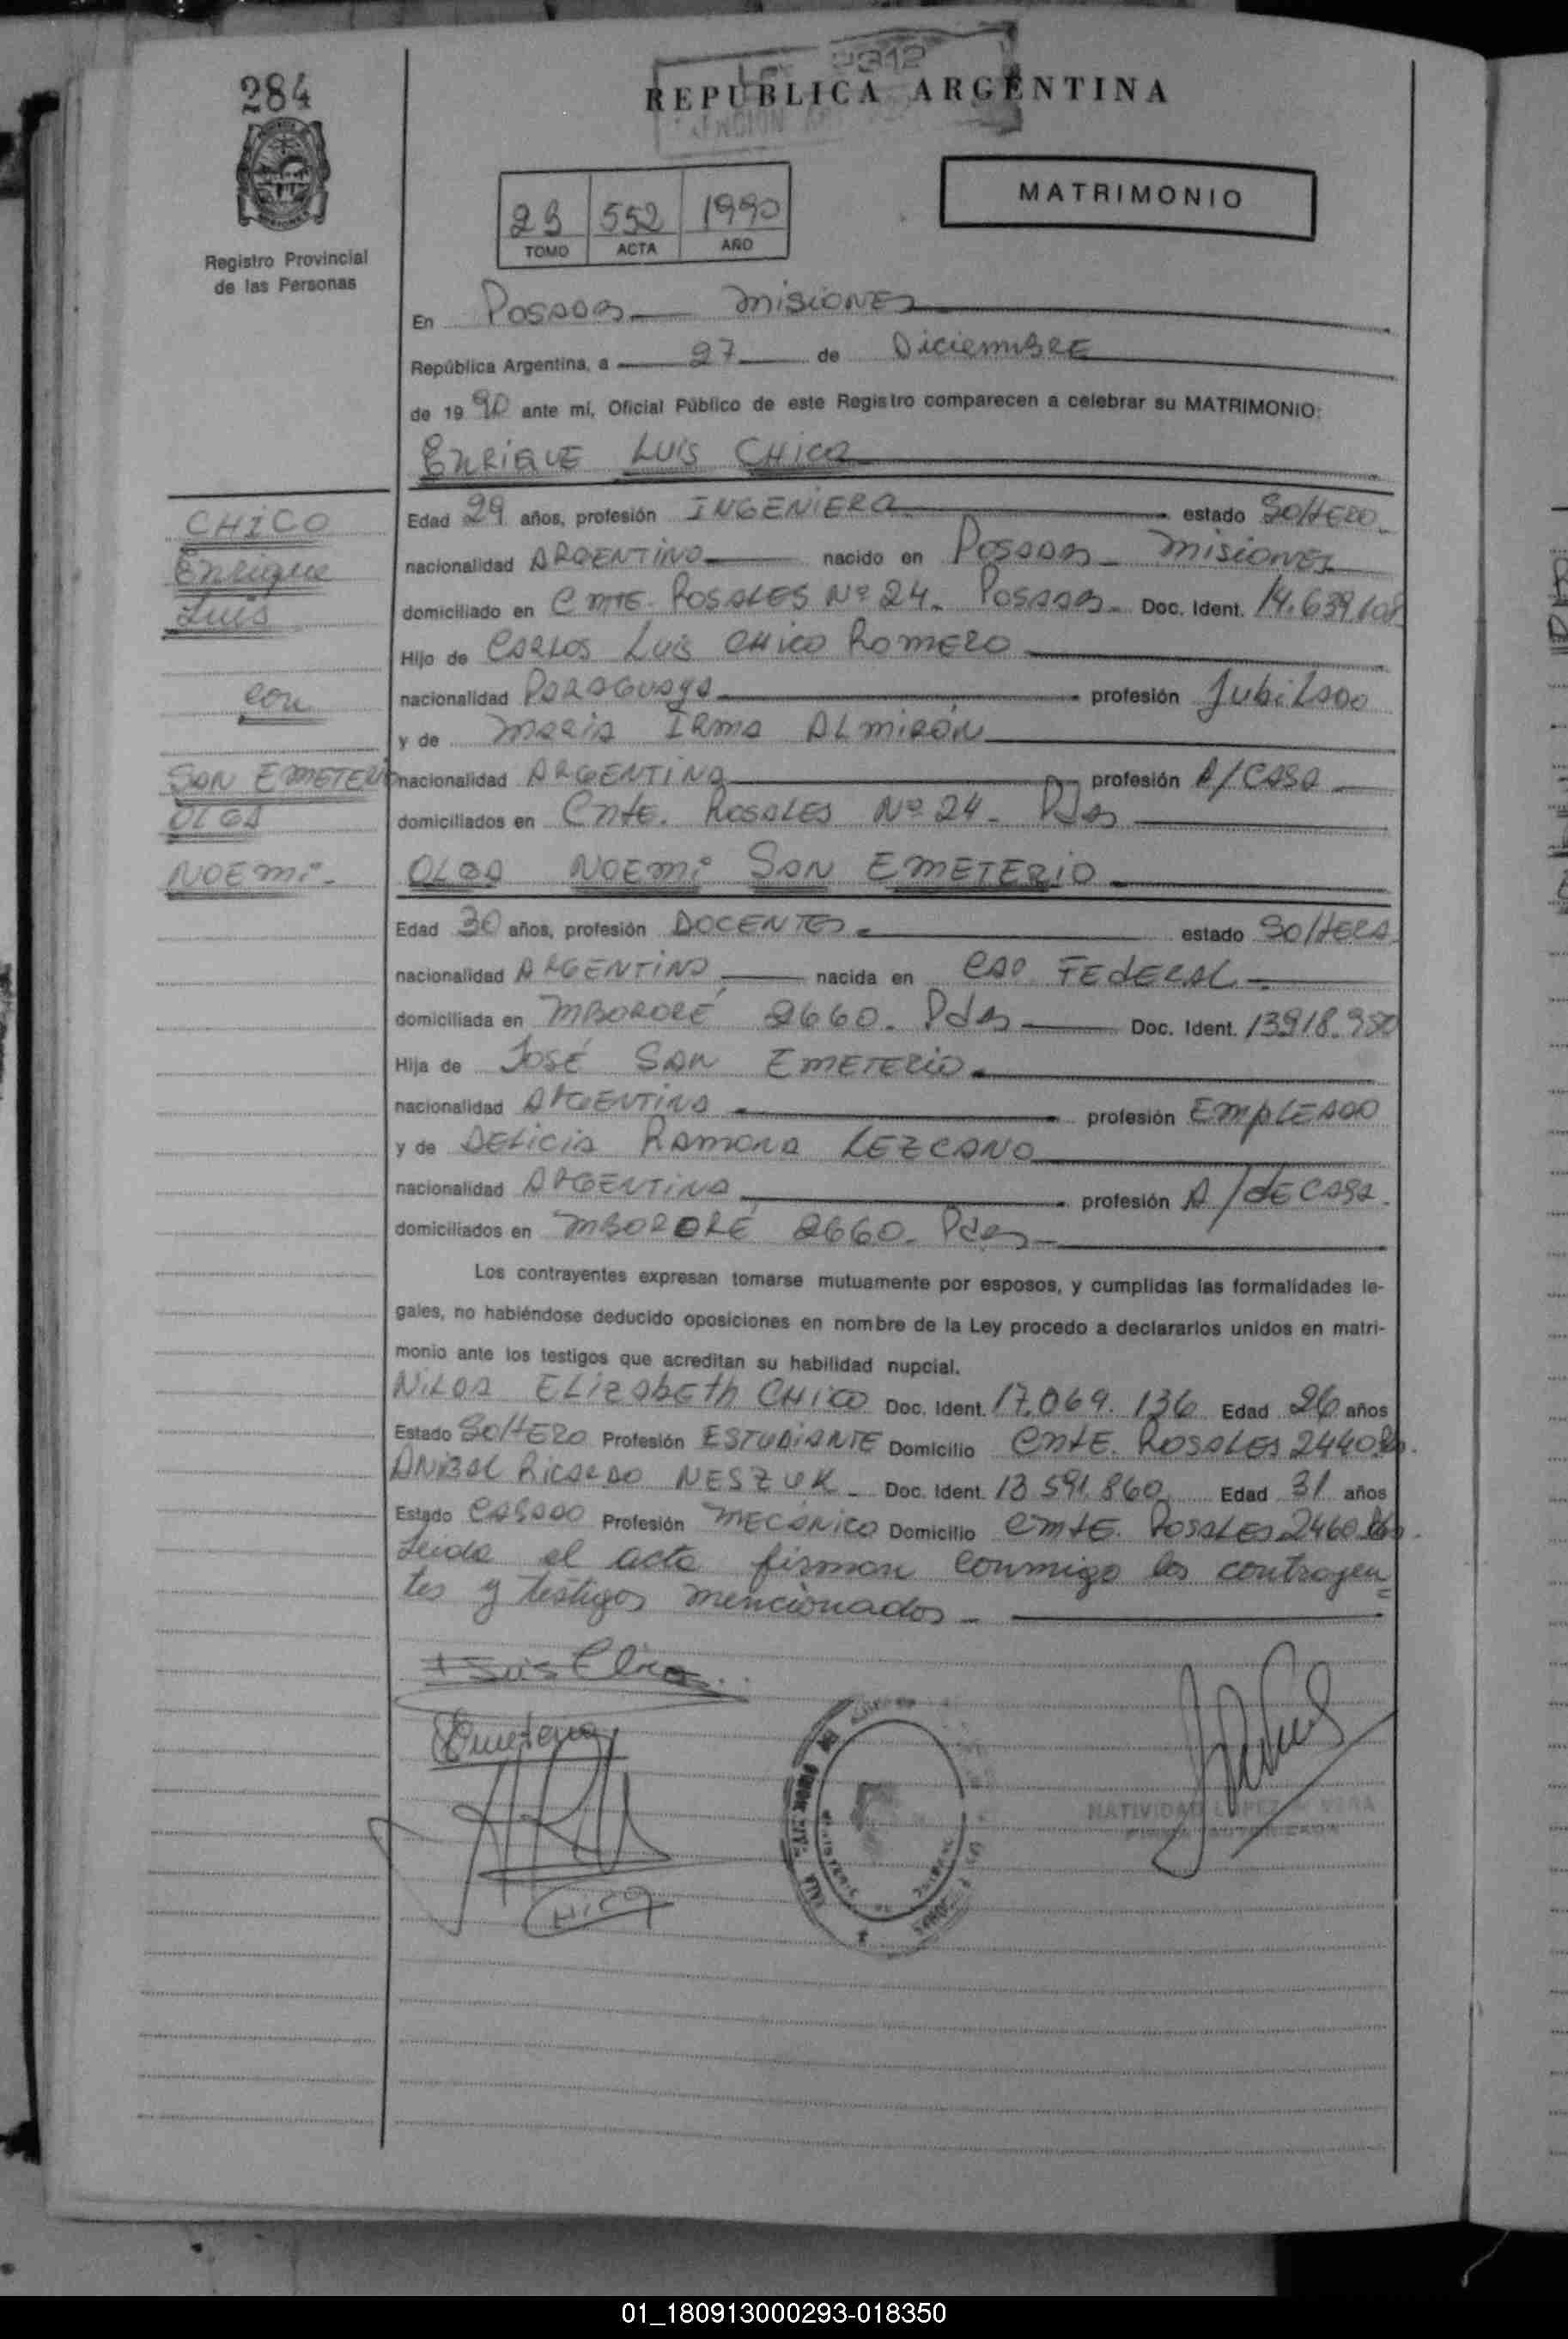 284
REPUBLICA ARGENTINA
Registro Provincial
de las Personas
MATRIMONIO
23 552 1990
TOMO ACTA AÑO
En Posadas Misiones
República Argentina, a 27 de Diciembre
de 1990 ante mí, Oficial Público de este Registro comparecen a celebrar su MATRIMONIO:
Enrique Luis Chico
CHICO
Enrique
Luis
con
SAN EMETERIO
OLGA
NOEMi.
Edad 29 años, profesión INGENIERO estado Soltero.
nacionalidad ARGENTINO nacido en Posadas Misiones
domiciliado en Cmte. Rosales Nº 24. Posadas. Doc. Ident. 14.639.108
Hijo de Carlos Luis Chico Romero
nacionalidad Paraguaya profesión Jubilado
y de Maria Irma Almirón
nacionalidad ARGENTINA profesión A/CASA
domiciliados en Cmte. Rosales Nº 24. Pdas
OLGA NOEMi SAN EMETERIO
Edad 30 años, profesión DOCENTE estado Soltera
nacionalidad ARGENTINA nacida en Cap. Federal
domiciliada en Mbororé 2660. Pdas Doc. Ident. 13918.950
Hija de José San Emeterio
nacionalidad ARGENTINA profesión Empleado
y de Delicia Ramona Lezcano
nacionalidad ARGENTINA profesión A/de Casa.
domiciliados en Mbororé 2660. Pdas
Los contrayentes expresan tomarse mutuamente por esposos, y cumplidas las formalidades le-
gales, no habiéndose deducido oposiciones en nombre de la Ley procedo a declararlos unidos en matri-
monio ante los testigos que acreditan su habilidad nupcial.
Nilda Elizabeth Chico Doc. Ident. 17.069.136 Edad 26 años
Estado Soltero Profesión Estudiante Domicilio Cmte. Rosales 2440
Anibal Ricardo Neszuk Doc. Ident. 13 591.860 Edad 31 años
Estado Casado Profesión Mecánico Domicilio Cmte. Rosales 2460
Leida el acta firman conmigo los contrayen=
tes y testigos mencionados
Luis Chico
Emeterio
Chico
NATIVIDAD LOPEZ VERA
FIRMA AUTORIZADA
01_180913000293-018350